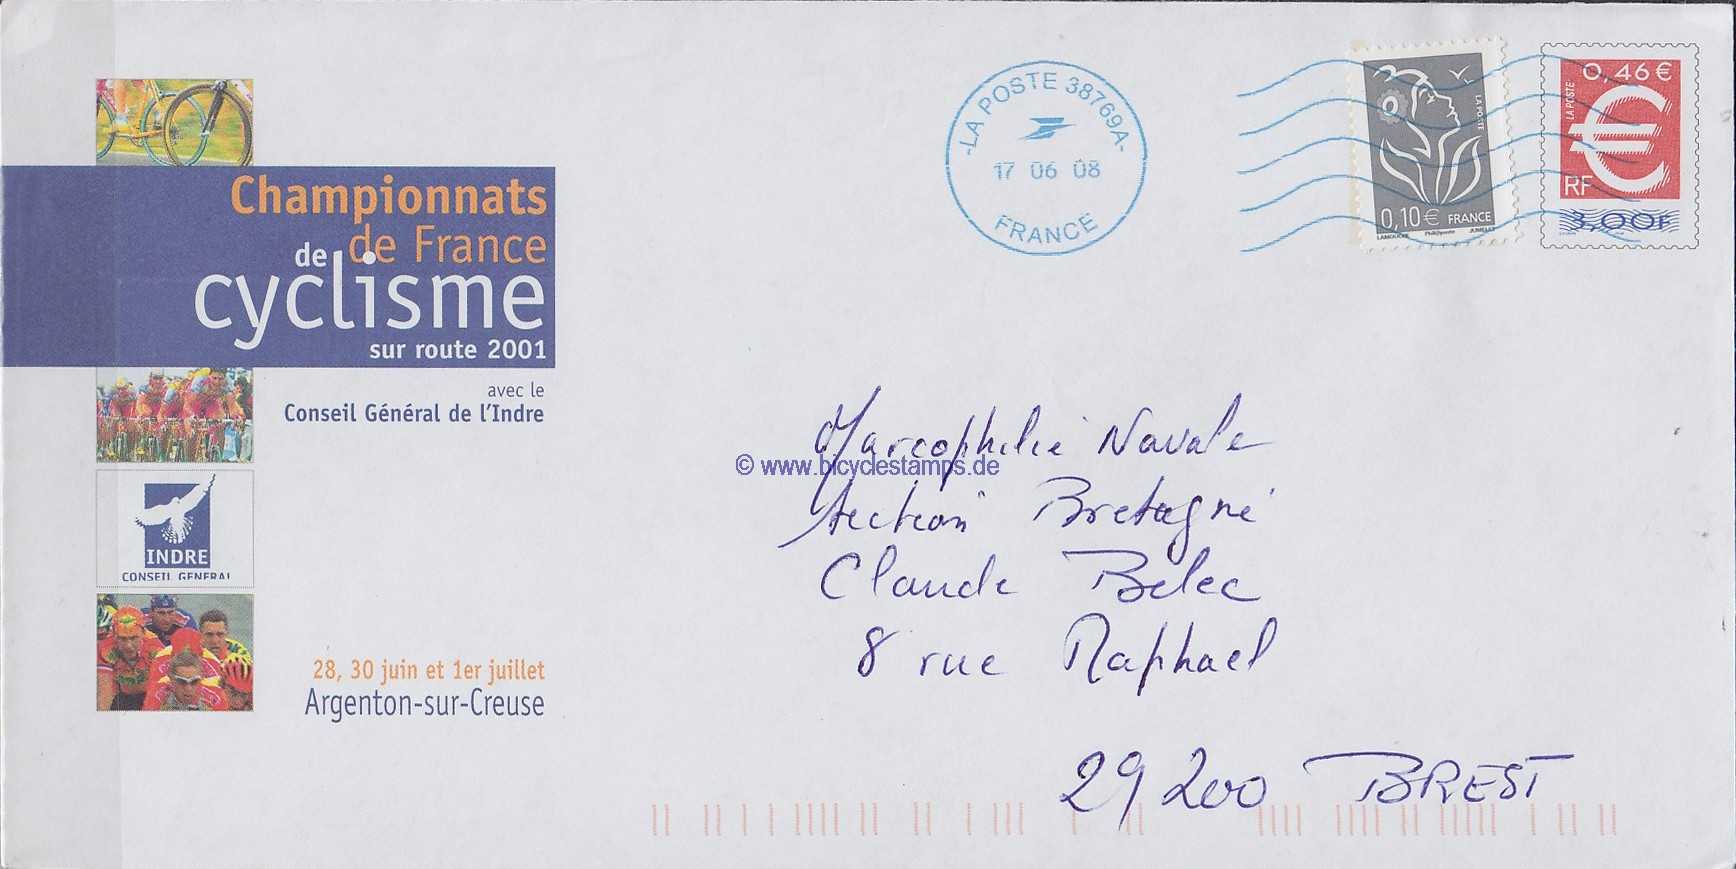 Championnats
de France
de
cyclisme
sur route 2001
avec le
Conseil Général de l'Indre
INDRE
CONSEIL GENERAL
28, 30 juin et 1er juillet
Argenton-sur-Creuse
-LA POSTE 38769A-
17 06 08
FRANCE
LA POSTE
0,10€ FRANCE
LAMOUCHE Phil@poste JUMELET
0,46 €
LA POSTE
€
RF
3,00F
Marcophilie Navale
© www.bicyclestamps.de
Section Bretagne
Claude Belec
8 rue Raphael
29200 BREST